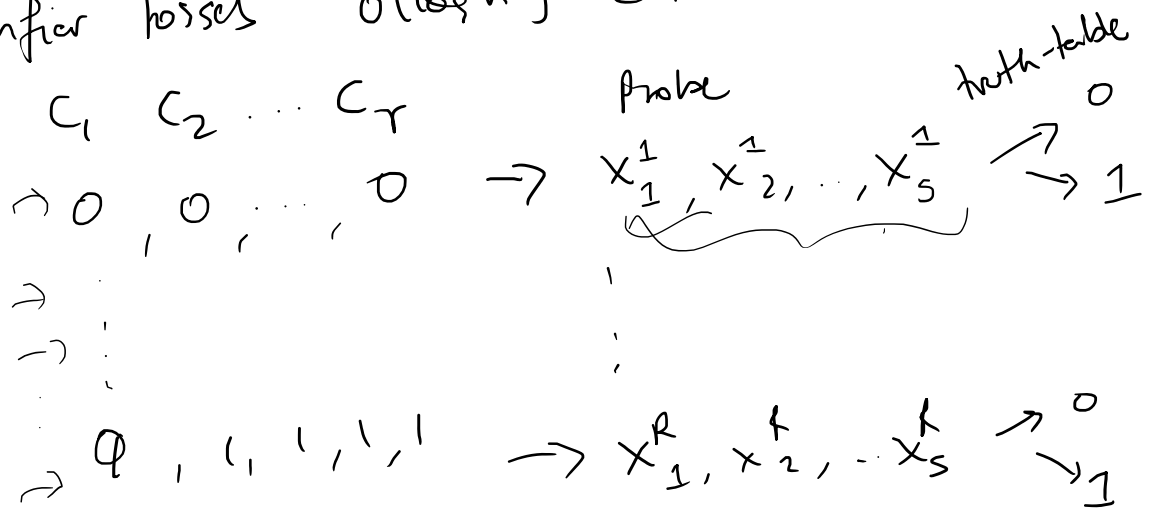 nfier tosses O(log n)
C₁ C₂ ... Cᵣ Probe truth-table
→ 0, 0, ..., 0 → X₁¹, X₂¹, ..., X₅¹ ↗ 0 → 1
→
→
→ 0, 1, 1, 1, 1 → X₁ᴿ, X₂ᴿ, ... X₅ᴿ → 0 ↘ 1